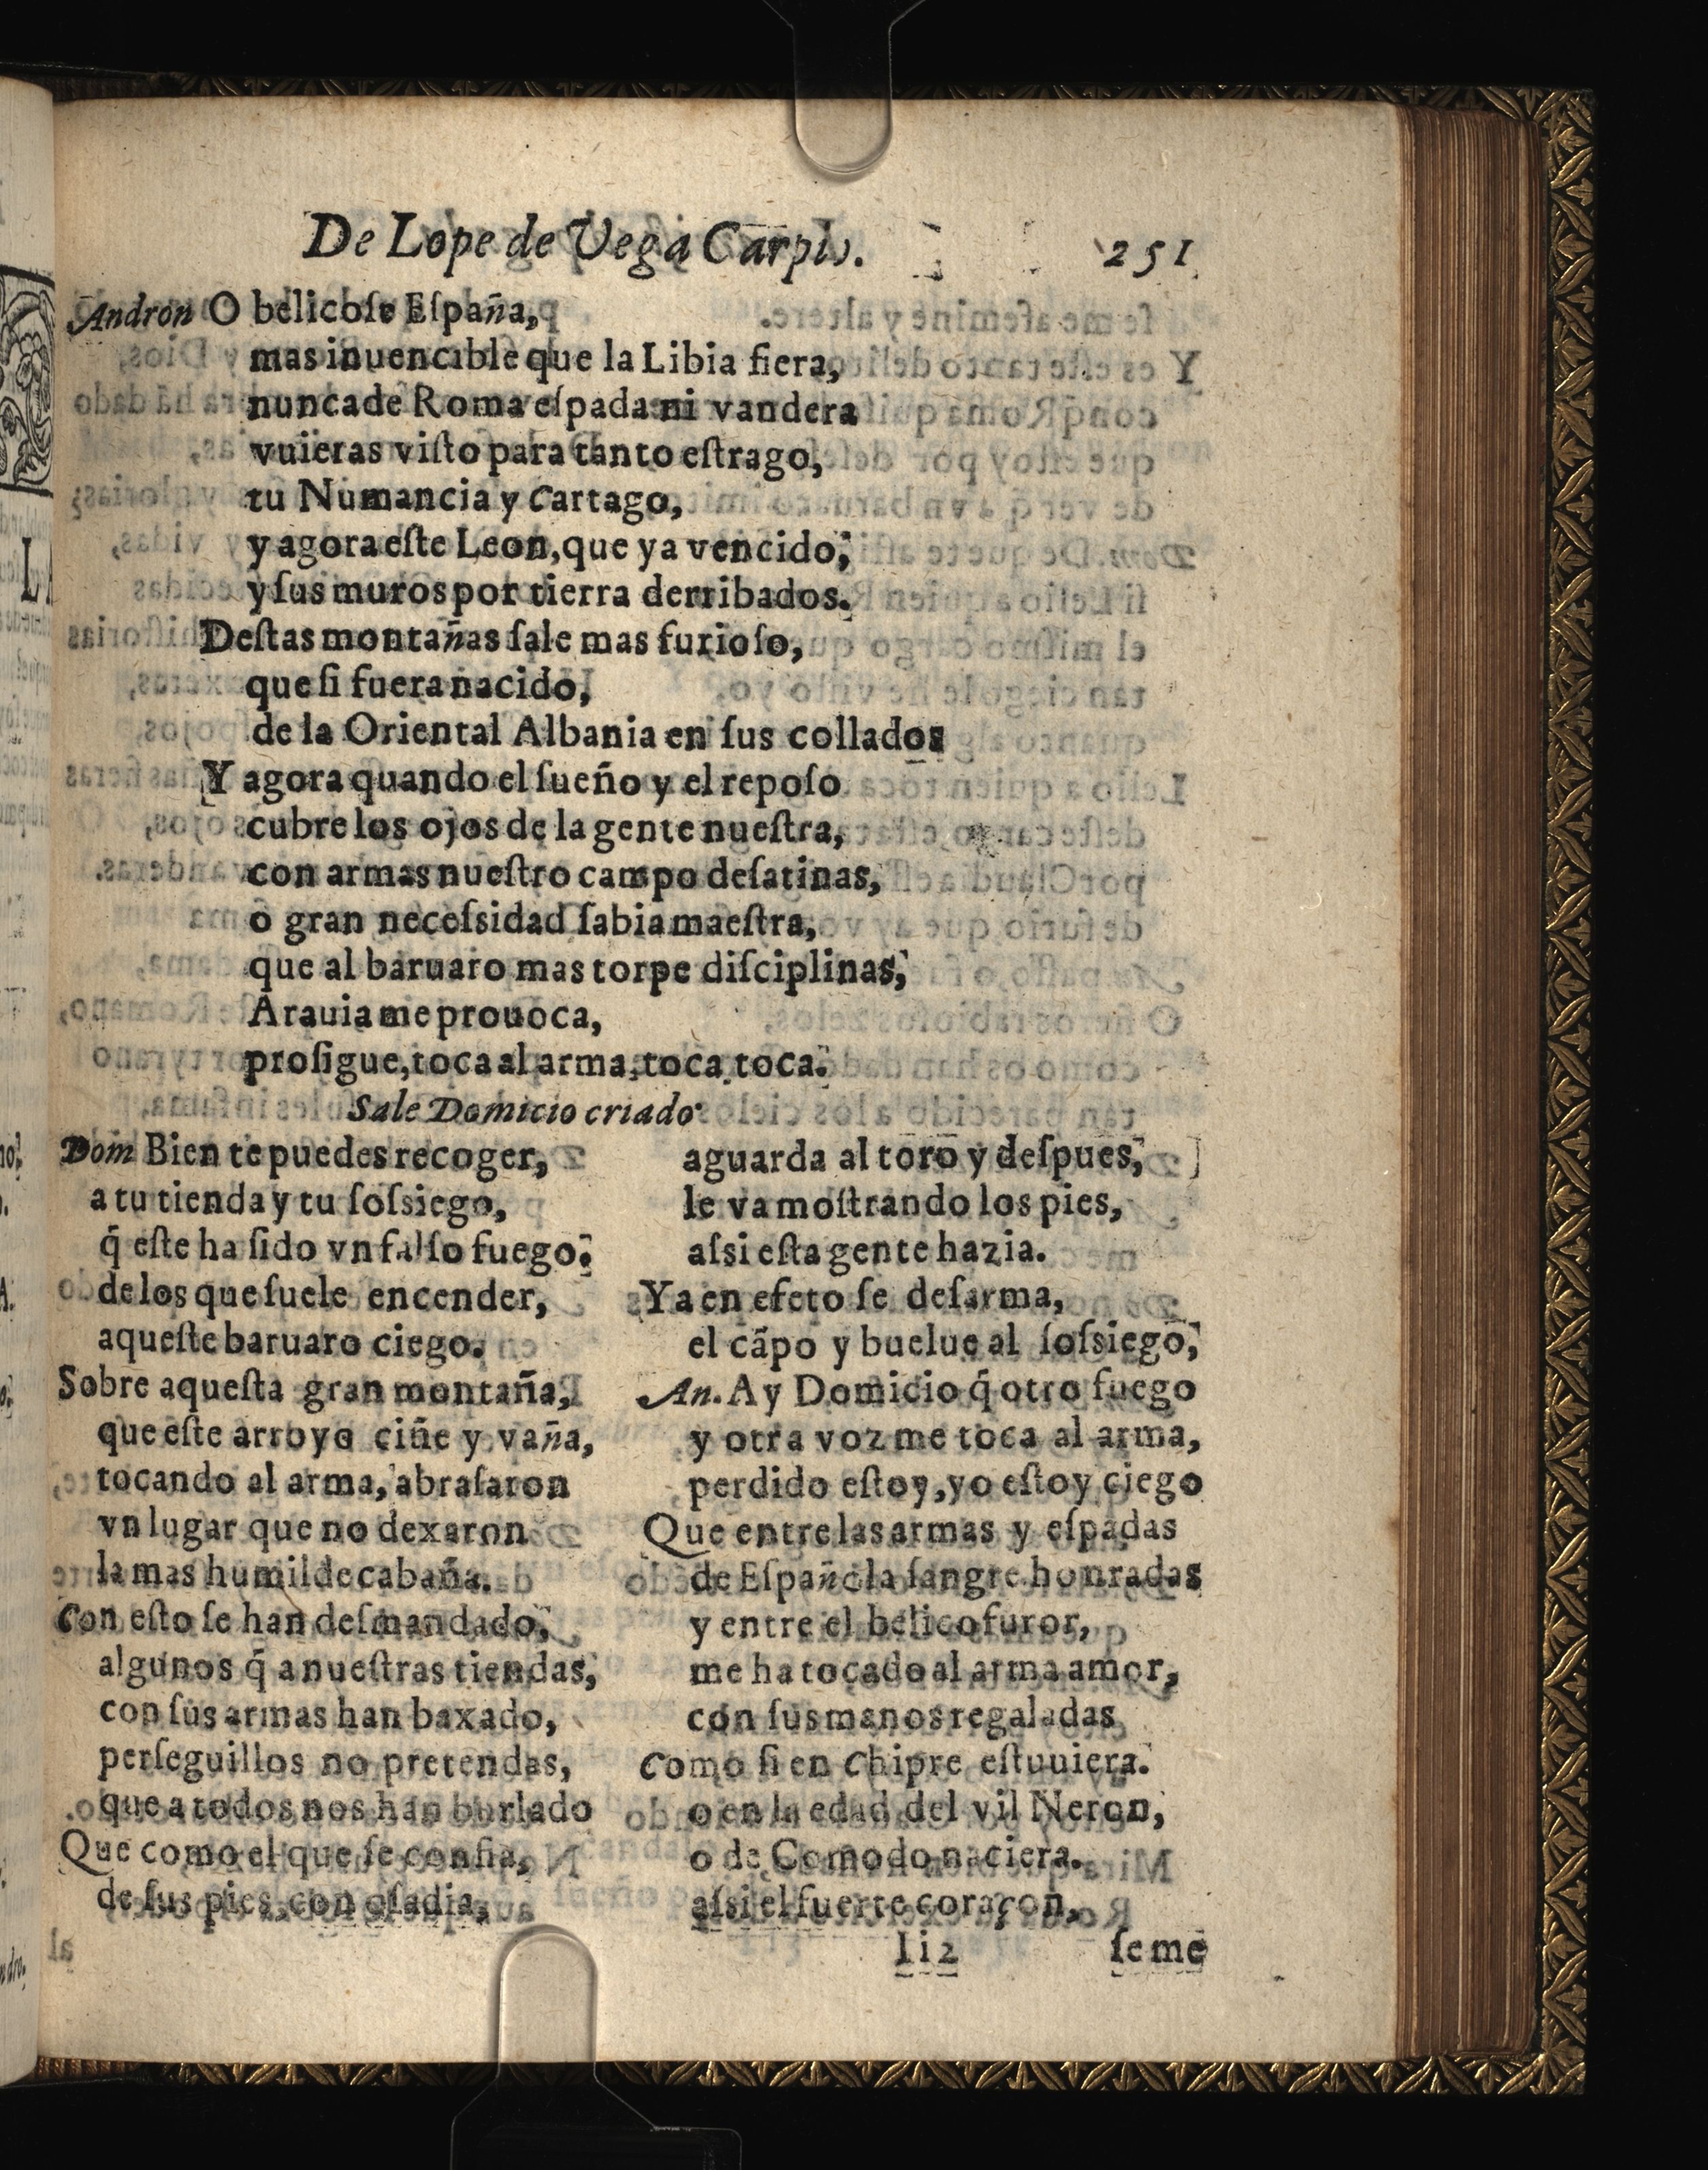 De Lope de Vega Carpio. 251
Andron O belicoſe Eſpaña,
mas inuencible que la Libia fiera,
nunca de Roma eſpada ni vandera
vuieras viſto para tanto eſtrago,
tu Numancia y Cartago,
y agora eſte Leon, que ya vencido,
y ſus muros por tierra derribados.
Deſtas montañas ſale mas furioſo,
que ſi fuera nacido,
de la Oriental Albania en ſus collados
Y agora quando el ſueño y el repoſo
cubre los ojos de la gente nueſtra,
con armas nueſtro campo deſatinas,
o gran neceſsidad ſabia maeſtra,
que al baruaro mas torpe diſciplinas,
Arauia me prouoca,
proſigue, toca al arma, toca, toca.
Sale Domicio criado
Dom Bien te puedes recoger,
a tu tienda y tu ſoſsiego,
q̃ eſte ha ſido vn falſo fuego.
de los que ſuele encender,
aqueſte baruaro ciego.
Sobre aqueſta gran montaña,
que eſte arroyo ciñe y vaña,
tocando al arma, abraſaron
vn lugar que no dexaron
la mas humilde cabaña.
Con eſto ſe han deſmandado,
algunos q̃ a nueſtras tiendas,
con ſus armas han baxado,
perſeguillos no pretendas,
que a todos nos han burlado
Que como el que ſe confia,
de ſus pies, con oſadia,
aguarda al toro y deſpues,
le va moſtrando los pies,
aſsi eſta gente hazia.
Ya en efeto ſe deſarma,
el cãpo y buelue al ſoſsiego,
An. Ay Domicio q̃ otro fuego
y otra voz me toca al arma,
perdido eſtoy, yo eſtoy ciego
Que entre las armas y eſpadas
de Eſpañola ſangre honradas
y entre el belico furor,
me ha tocado al arma amor,
con ſus manos regaladas
Como ſi en Chipre eſtuuiera.
o en la edad del vil Neron,
o de Comodo naciera.
aſsi el fuerte coraçon,
Ii2 ſe me